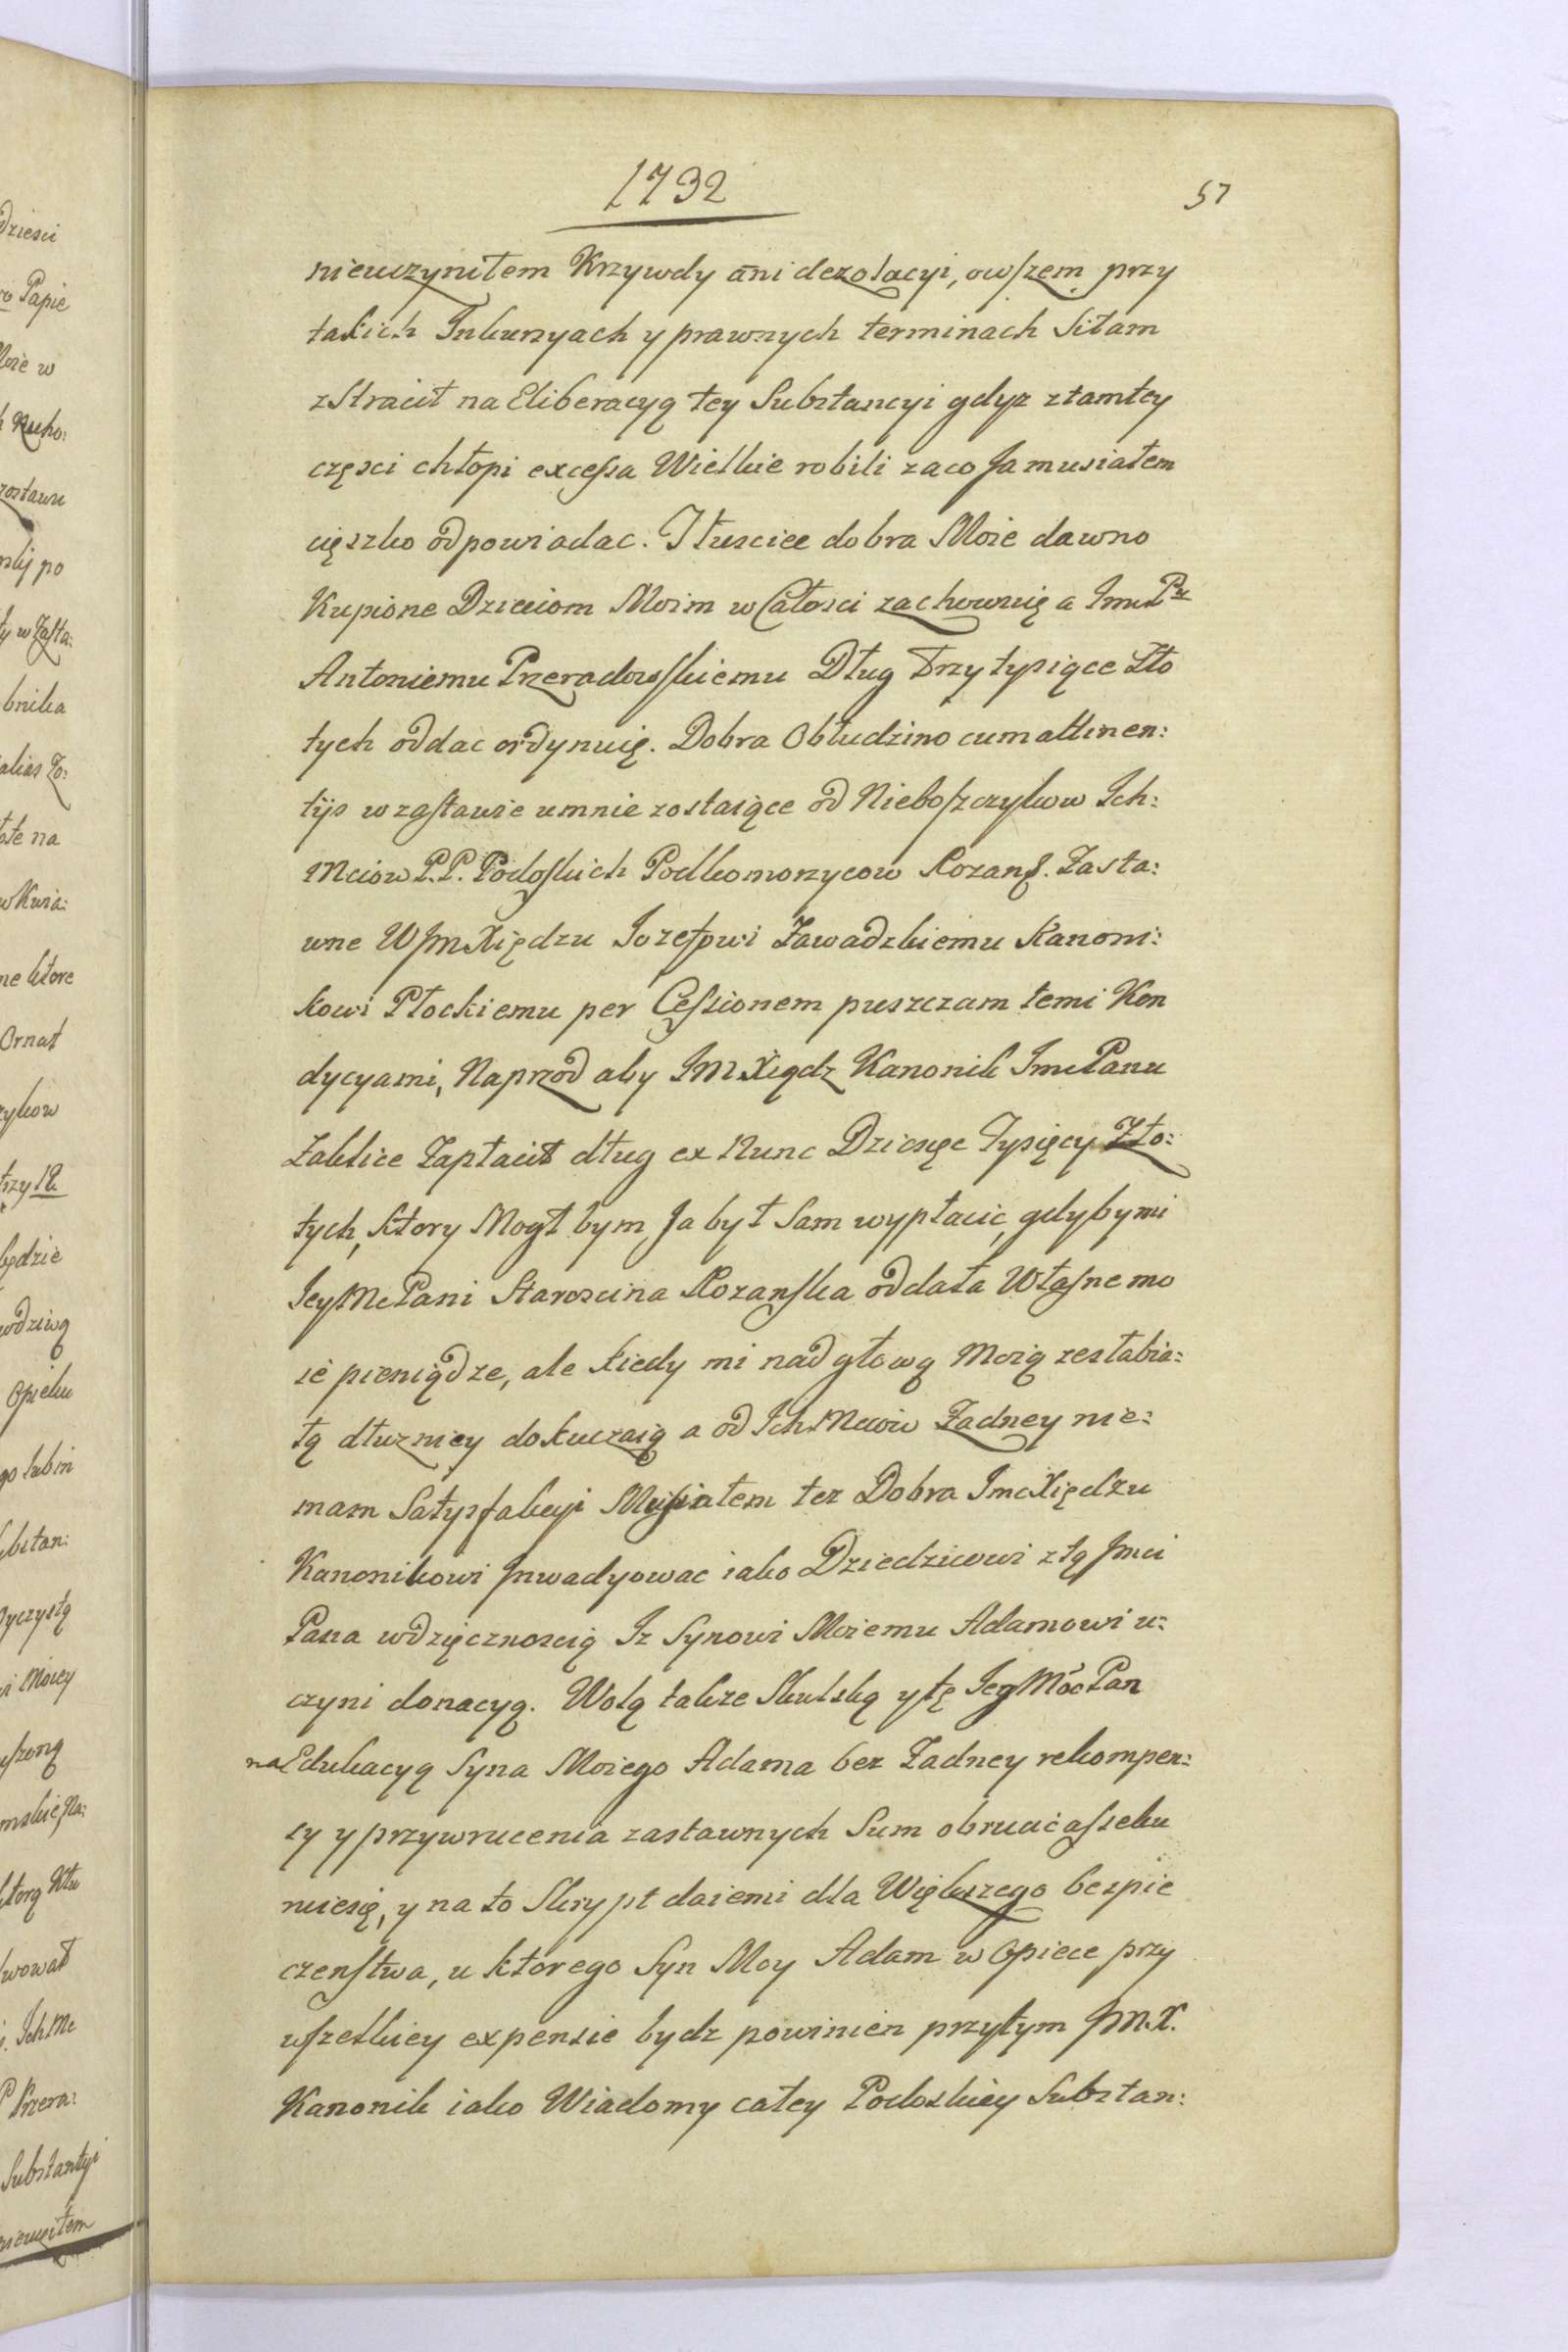 1792
57
nieuczyniłem Krzywdy ani dezolacyi, owszem przy
takich Inkursyach y prawnych terminach siłam
zstracił na Eliberacyą tey Substancyi gdyz ztamtey
częsci chłopi excessa Wielkie robili zaco Ja musiałem
cięszko odpowiadac. Tłuscice dobra Moie dawno
Kupione Dzieciom Moim w Całosci zachownię a Imc Pu
Antoniemu Przeradowskiemu Dług Trzy tysiące Zło
tych oddac ordynuię. Dobra Obłudzino cum attinen:
tijs w zastawie umnie zostaiące od Nieboszczykow Ich:
Mciow P.P. Podoskich Podkomorzycow Rozans. Zasta:
wne WJm Xiędzu Jozefowi Zawadzkiemu Kanoni:
kowi Płockiemu per Cessionem puszczam temi Kon
dycyami, Naprzod aby JM Xiądz Kanonik Imc Panu
Zablice Zapłacił dług ex Nunc Dziesięc Tysięcy Zło:
tych, ktory Mogł bym Ja był Sam wypłacic, gdyby mi
Jey Mc Pani Staroscina Rozanska oddała Własne mo
ie pieniądze, ale kiedy mi nad głową Moią zesłabia:
łą dłuzniey dokuczaią a od Ich Mciow Zadney nie:
mam Satysfakcyi Musiałem tez Dobra Imc Xiędzu
Kanonikowi Inwadyowac iako Dziedzicowi z tą Jmci
Pana wdzięcznoscią Iz Synowi Moiemu Adamowi u:
czyni donacyą. Wolą takze Skulską y tę Jey Mośc Pan
na Edukacyą Syna Moiego Adama bez Zadney rekompen:
sy y przywrucenia zastawnych Sum obrucic asseku
ruiesię, y na to Skrypt daiemi dla Większego bespie
czenstwa, u ktorego Syn Moy Adam w Opiece przy
wszelkiey expensie bydz powinien przytym JM.X.
Kanonik iako Wiadomy całey Podoskiey Substan: